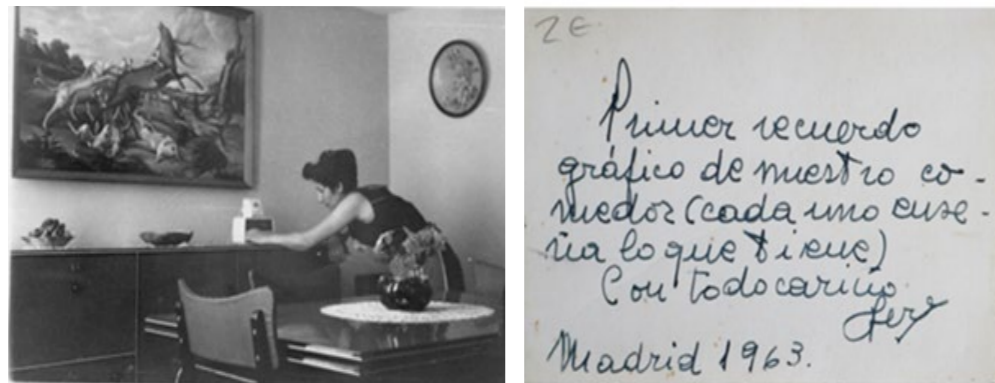 2 €
Primer recuerdo
gráfico de nuestro co-
medor (cada uno ense-
ña lo que tiene)
Con todo cariño
Madrid 1963.